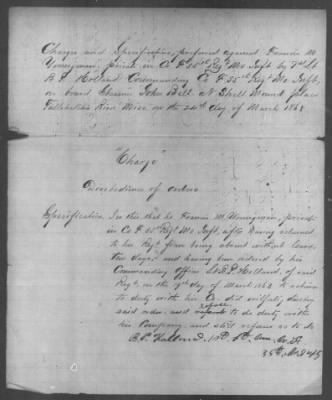 Charge and Specification, preferred against Francis M
Youngman, private in Co F 35th Regt Mo Inft by 2nd Lt
B. P. Holland Commanding Co F 35th Regt Mo Inft,
on board Steamer John Bell N Shell Mound place
Tallahatchie River Miss on the 24th day of March 1863
"Charge"
Disobedience of orders
Specification In this that he Francis M. Youngman, private
in Co F 35th Regt Mo Inft, after having returned
to his Regt from being about without leave
days and having been ordered by his
Commanding officer Lt B. P. Holland, of said
Regt, on the day of March 1863 to return
to duty with his Co did wilfully disobey
said order and refuse to do duty with
his Company, and still refuses so to do
B. P. Holland, 2nd Lt Com Co F
35th M S V I